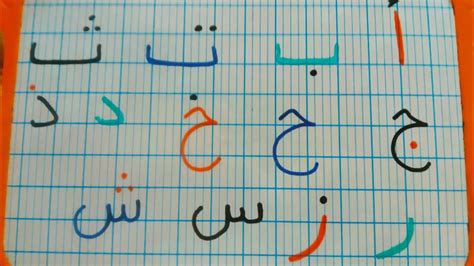 أ ب ت ث
ج ح خ د ذ
ر ز س ش